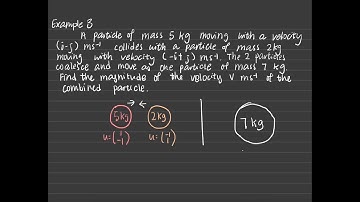 Example 3
A particle of mass 5 kg moving with a velocity
(i-j) ms⁻¹ collides with a particle of mass 2kg
moving with velocity (-i+j) ms⁻¹. The 2 particles
coalesce and move as one particle of mass 7 kg.
Find the magnitude of the velocity V ms⁻¹ of the
combined particle.
→ ←
5kg 2kg 7kg
u=(1 -1) u=(-1 1)